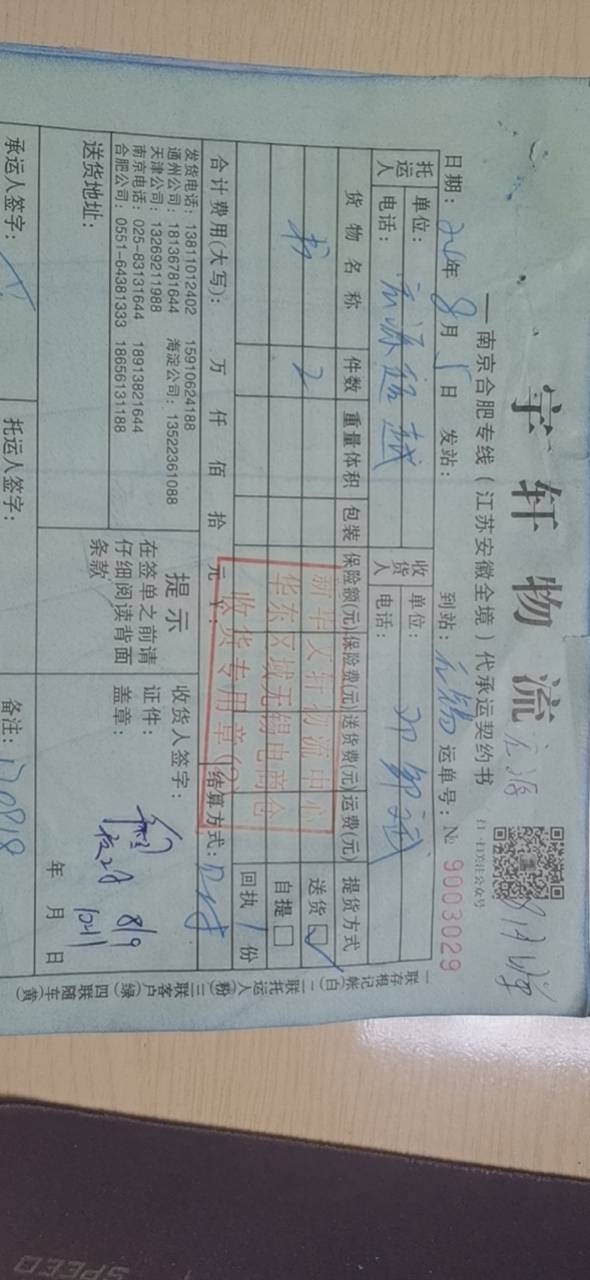 宇轩物流
扫一扫关注公众号
—南京合肥专线(江苏安徽全境)代承运契约书
日期: 24年8月5日 发站: 到站: 无锡 运单号: № 9003029
托运人 单位: 电话: 收货人 单位: 电话:
货物名称 件数 重量体积 包装 保险额(元) 保险费(元) 送货费(元) 运费(元) 提货方式
书 2 送货☑
自提□
回执 1 份
新华文轩物流中心
华东区域无锡电商仓
收货专用章(2)
合计费用(大写): 万 仟 佰 拾 元 结算方式:
发货电话: 13811012402 15910624188
通州公司: 18136781644 海淀公司: 13522361088
天津公司: 13269211988
南京电话: 025-83131644 18913821644
合肥公司: 0551-64381333 18656131188
提示
在签单之前请
仔细阅读背面
条款
收货人签字:
证件:
盖章:
8/9
年 月 日
送货地址:
承运人签字: 托运人签字: 备注:
一联存根记帐(白) 二联托运人(粉) 三联客户(绿) 四联随车(黄)
SPEED